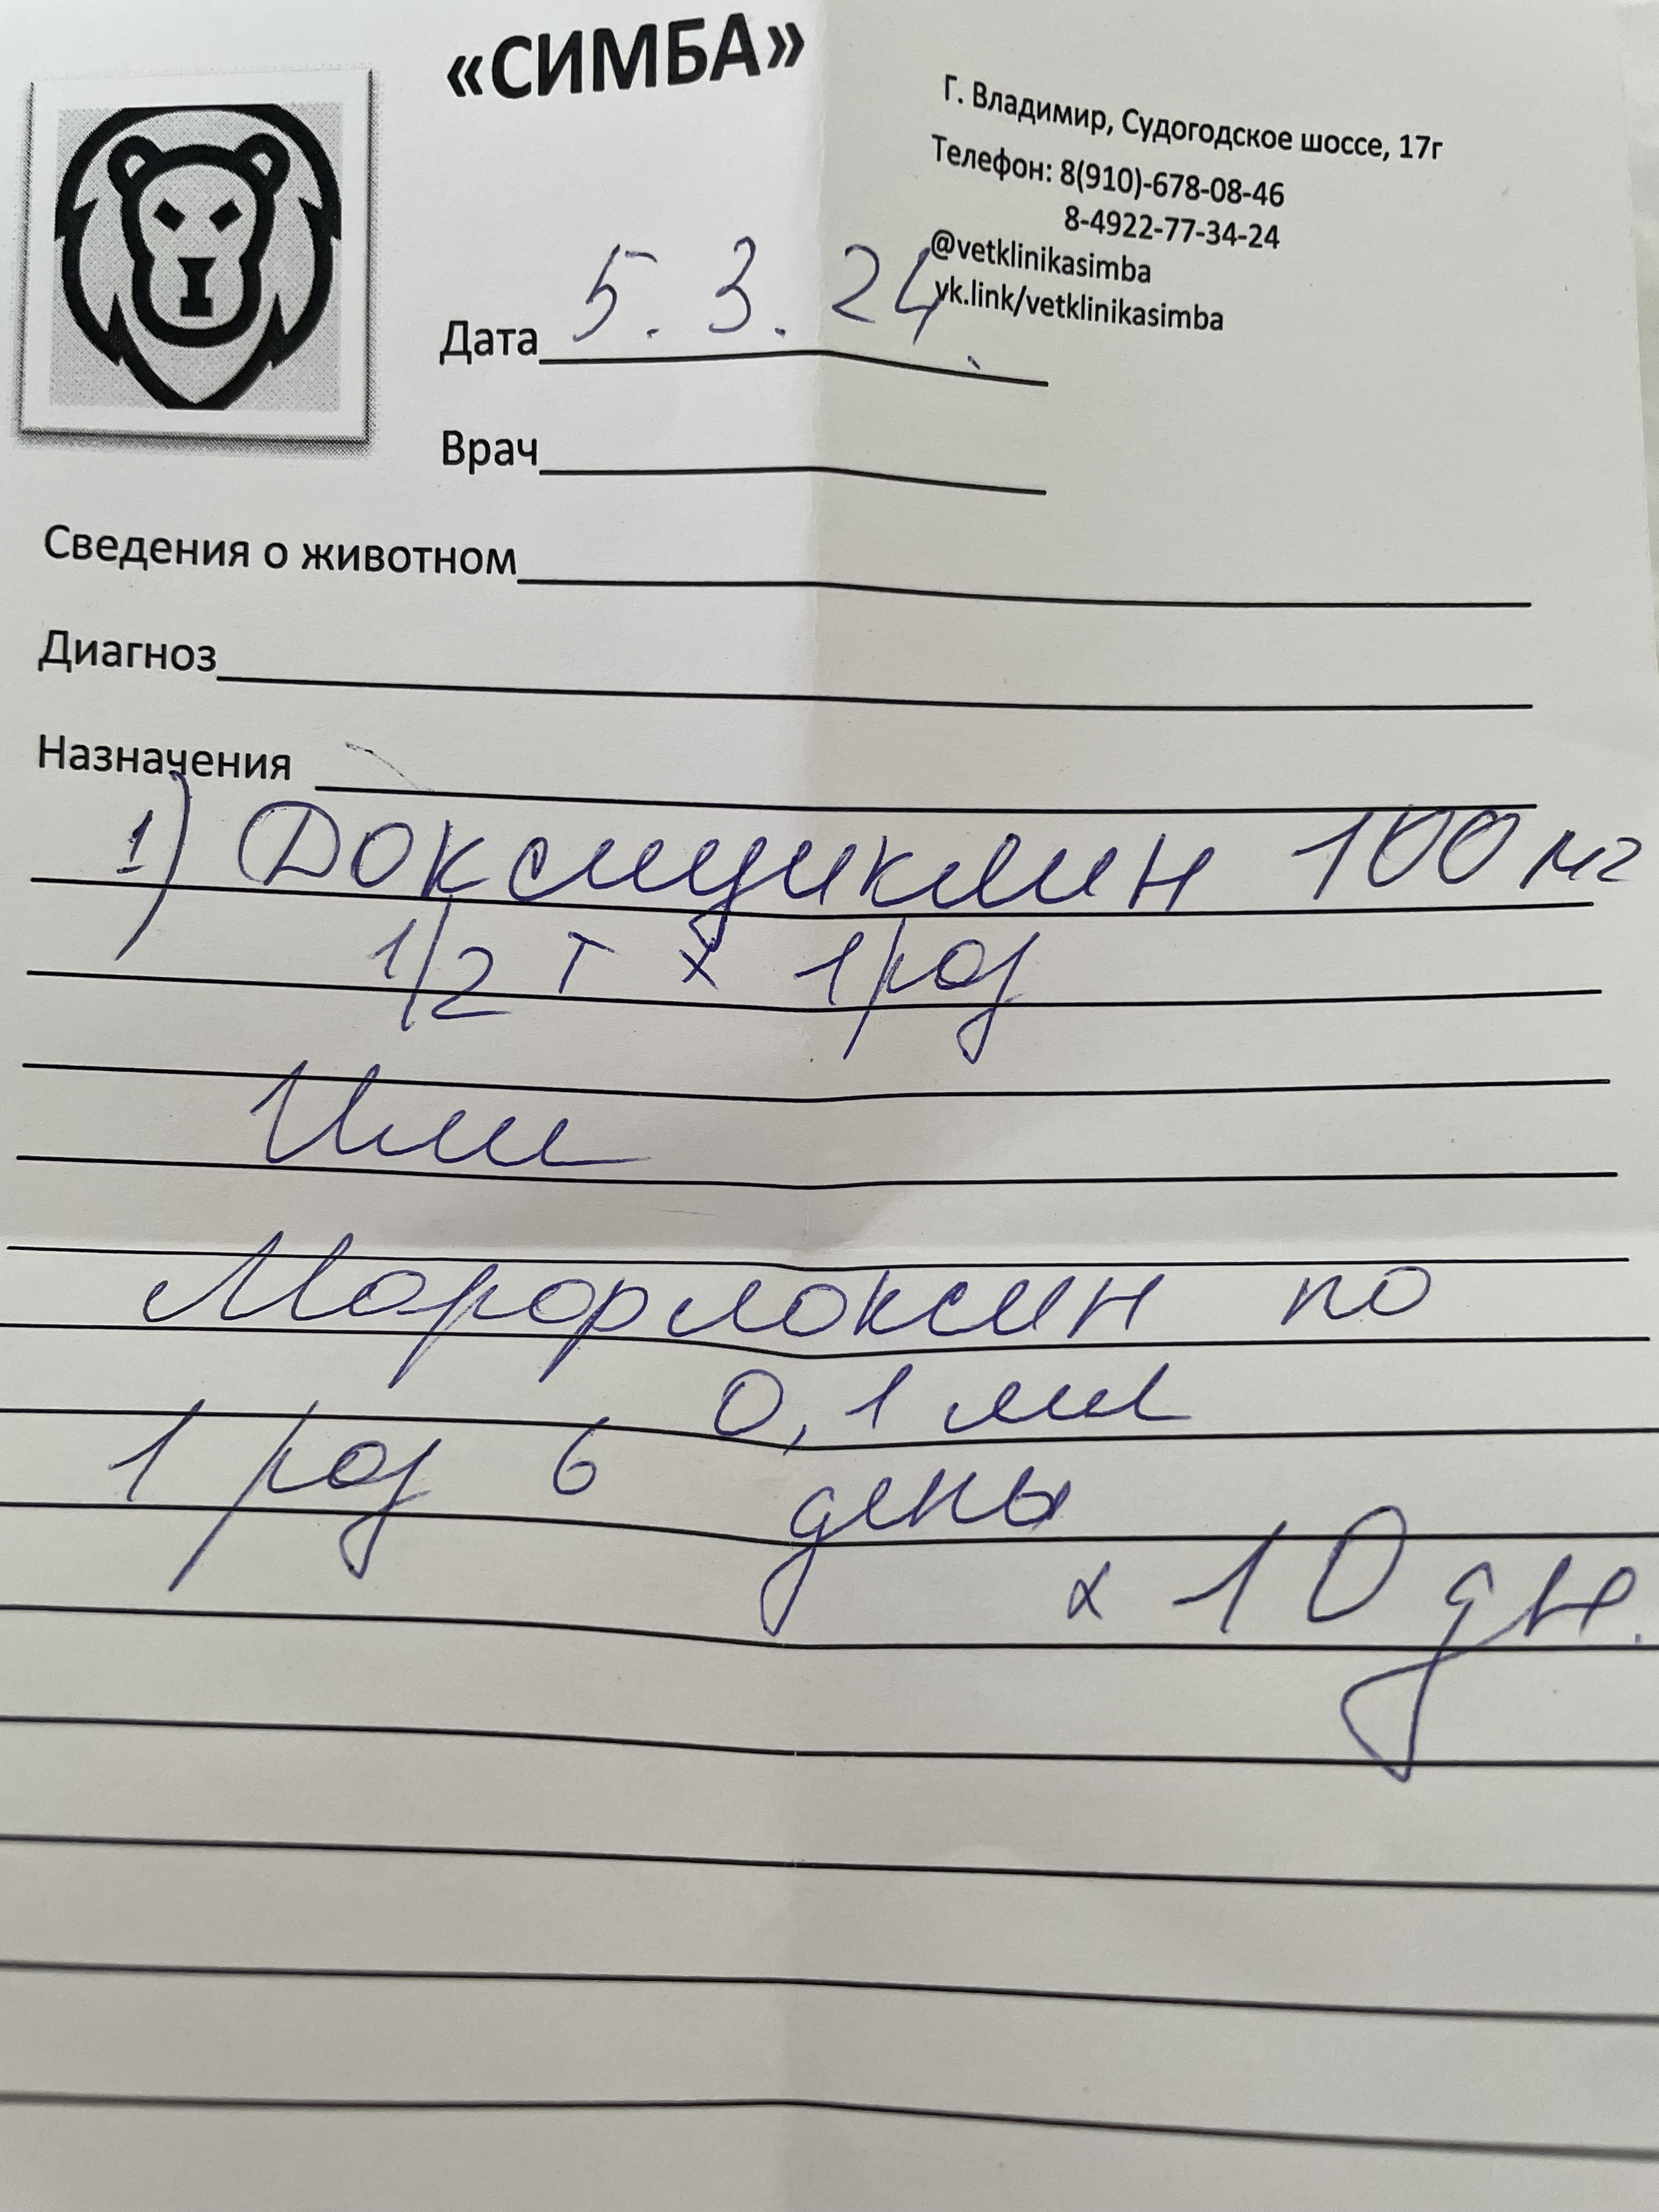 «СИМБА»
Г. Владимир, Судогодское шоссе, 17г
Телефон: 8(910)-678-08-46
8-4922-77-34-24
@vetklinikasimba
vk.link/vetklinikasimba
Дата 5.3.24.
Врач
Сведения о животном
Диагноз
Назначения
1) Доксициклин 100 мг
1/2 т х 1 раз
Или
Марфлоксин по
0,1 мл
1 раз в день
х 10 дн.